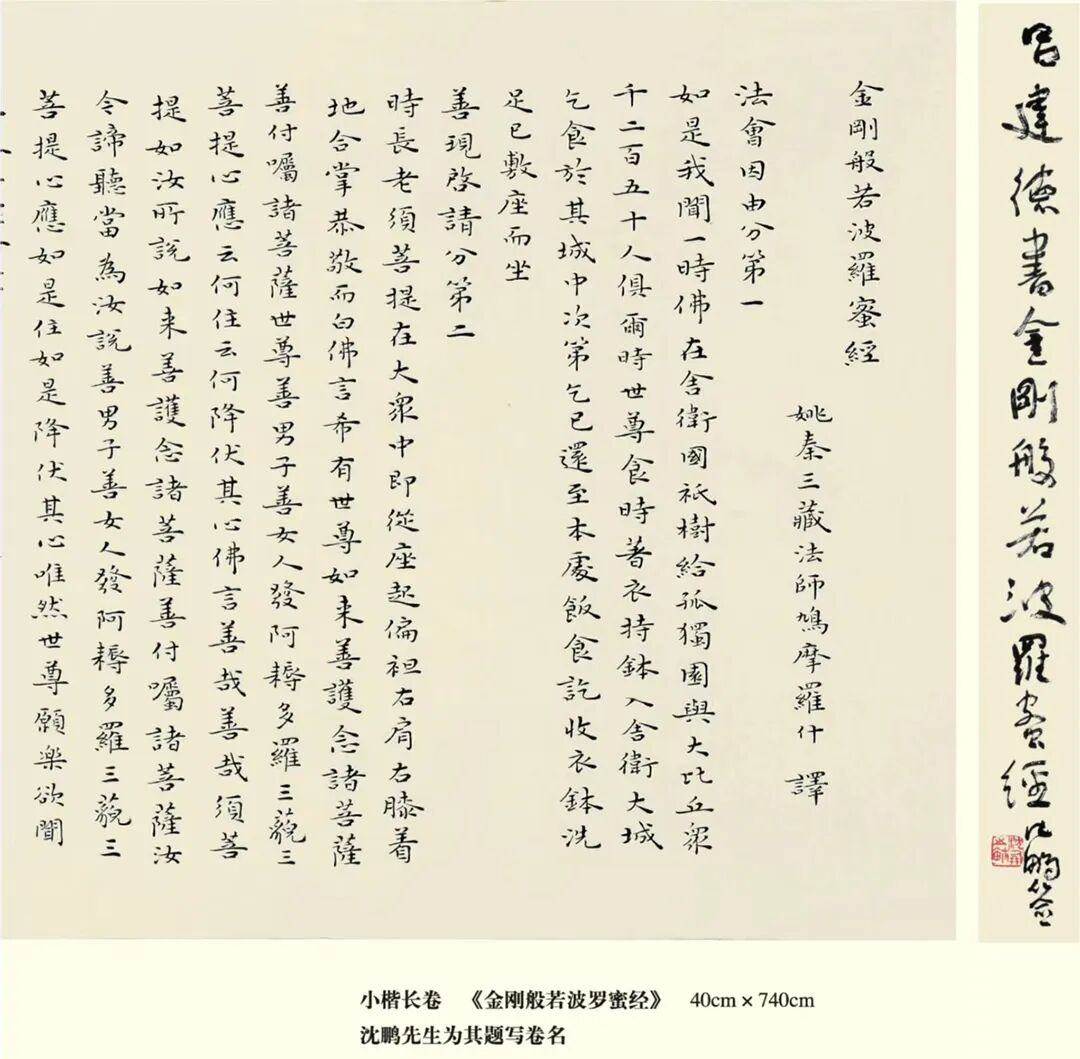 吕建德書金剛般若波羅蜜經沈鵬签
金剛般若波羅蜜經
姚秦三藏法師鳩摩羅什 譯
法會因由分第一
如是我聞一時佛在舍衛國祇樹給孤獨園與大比丘衆
千二百五十人俱爾時世尊食時著衣持鉢入舍衛大城
乞食於其城中次第乞已還至本處飯食訖收衣鉢洗
足已敷座而坐
善現啓請分第二
時長老須菩提在大衆中即從座起偏袒右肩右膝着
地合掌恭敬而白佛言希有世尊如来善護念諸菩薩
善付囑諸菩薩世尊善男子善女人發阿耨多羅三藐三
菩提心應云何住云何降伏其心佛言善哉善哉須菩
提如汝所說如来善護念諸菩薩善付囑諸菩薩汝
令諦聽當為汝說善男子善女人發阿耨多羅三藐三
菩提心應如是住如是降伏其心唯然世尊願樂欲聞
小楷长卷 《金刚般若波罗蜜经》 40cm × 740cm
沈鹏先生为其题写卷名